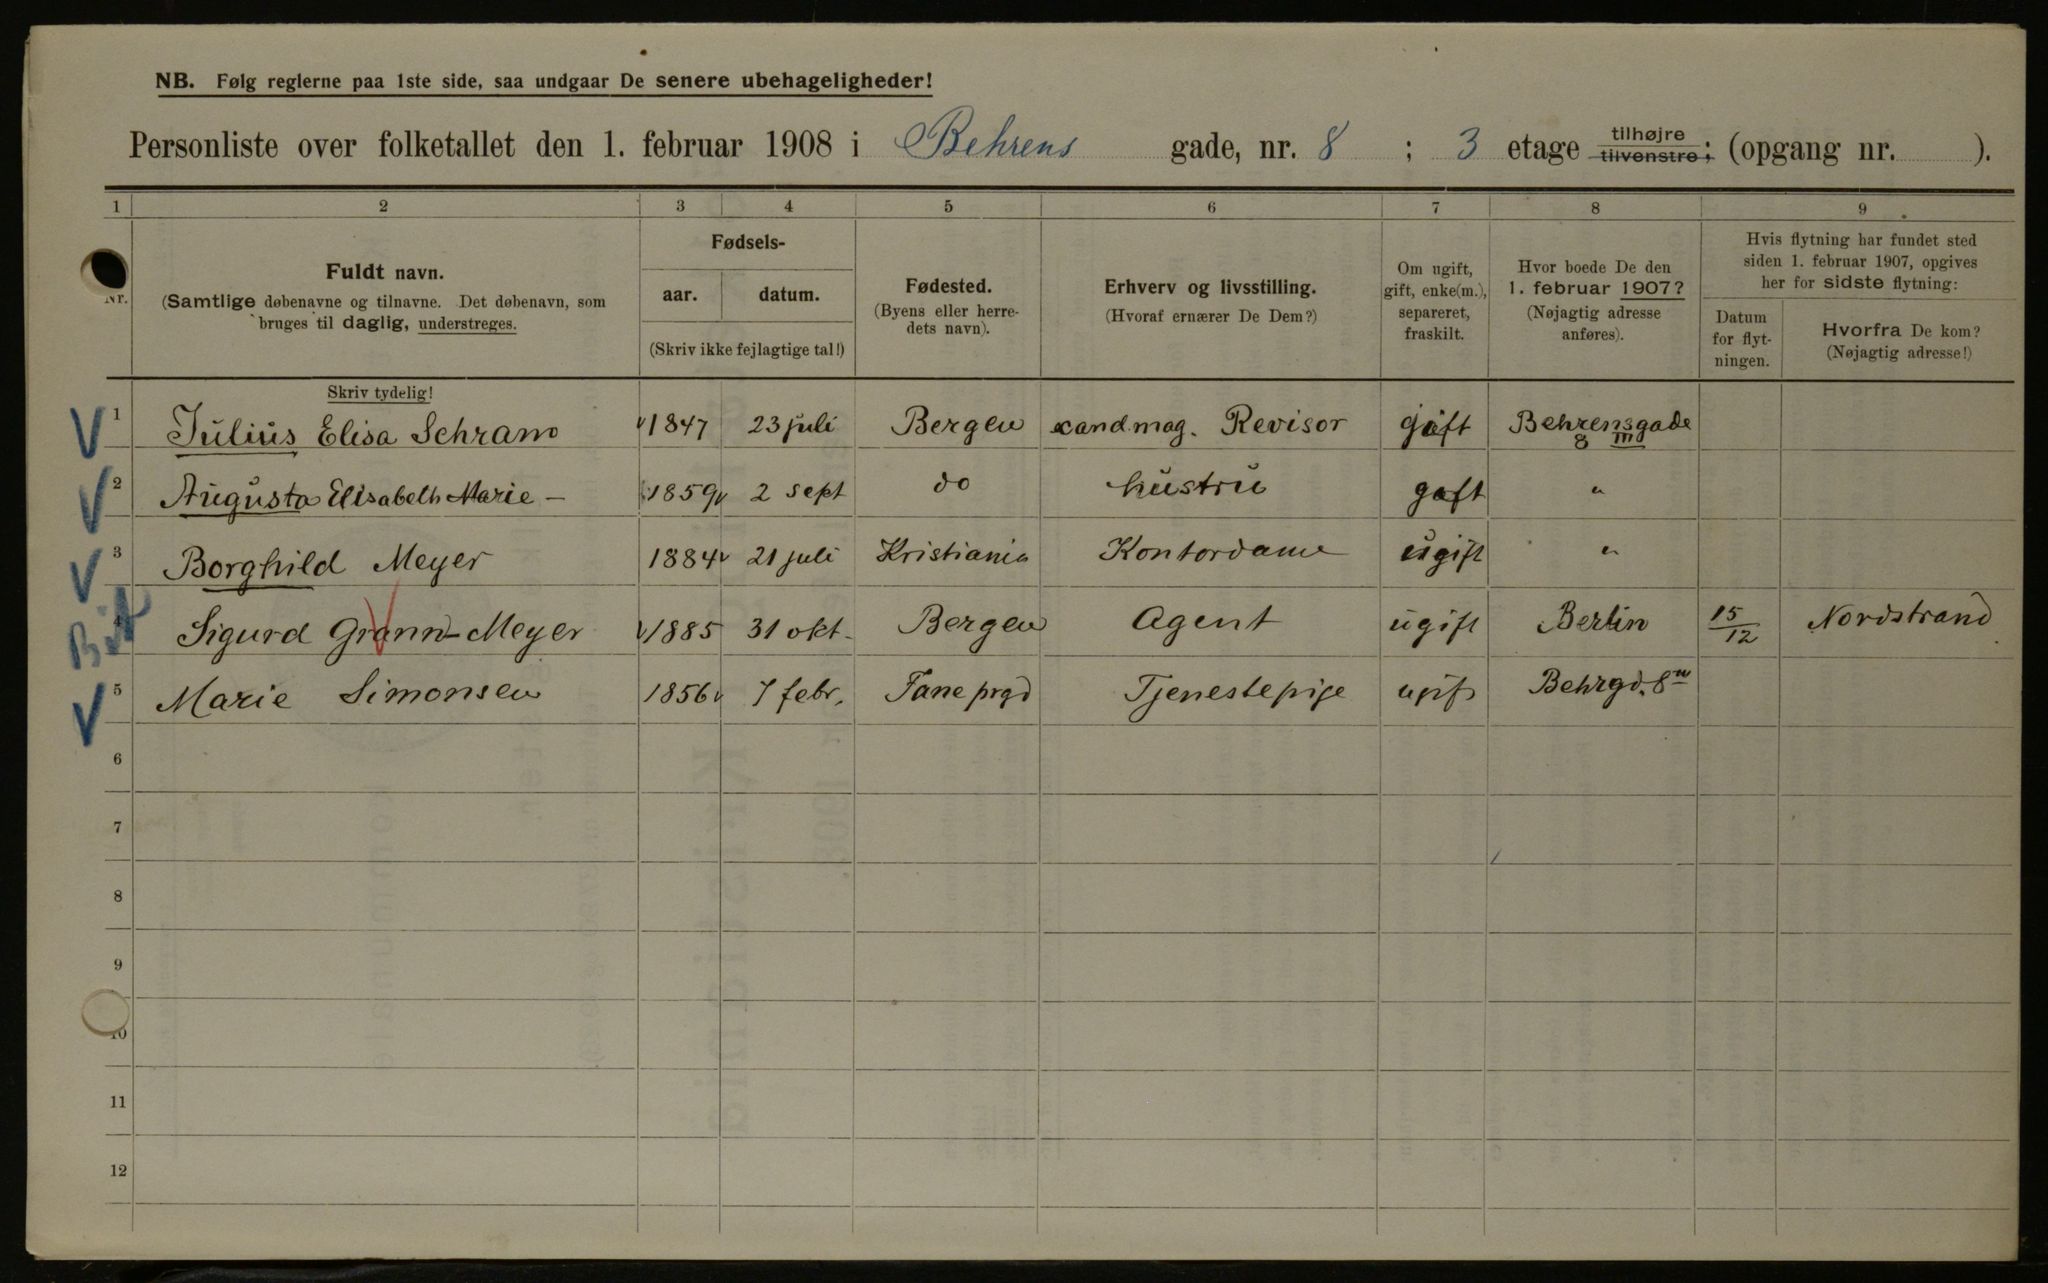 NB. Følg reglerne paa 1ste side, saa undgaar De senere ubehageligheder!
Personliste over folketallet den 1. februar 1908 i Behrens gade, nr. 8 ; 3 etage tilhøjre tilvenstre; (opgang nr. ).
1 2 3 4 5 6 7 8 9
Nr.
Fuldt navn.
(Samtlige døbenavne og tilnavne. Det døbenavn, som
bruges til daglig, understreges.
Skriv tydelig!
Fødsels-
aar. datum.
(Skriv ikke fejlagtige tal!)
Fødested.
(Byens eller herre-
dets navn).
Erhverv og livsstilling.
(Hvoraf ernærer De Dem?)
Om ugift,
gift, enke(m.),
separeret,
fraskilt.
Hvor boede De den
1. februar 1907?
(Nøjagtig adresse
anføres).
Hvis flytning har fundet sted
siden 1. februar 1907, opgives
her for sidste flytning:
Datum
for flyt-
ningen.
Hvorfra De kom?
(Nøjagtig adresse!)
1 Julius Elisa Schram 1847 23 juli Bergen cand mag. Revisor gift Behrensgade
8 III
2 Augusta Elisabeth Marie — 1859 2 sept do hustru gift "
3 Borghild Meyer 1884 21 juli Kristiania Kontordame ugift "
4 Sigurd Grann-Meyer 1885 31 okt. Bergen Agent ugift Berlin 15/12 Nordstrand
5 Marie Simonsen 1856 7 febr. Fane prgd Tjenestepige ugift Behrgd. 8
6
7
8
9
10
11
12